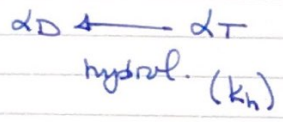 αD ← αT
hydrol. (kh)